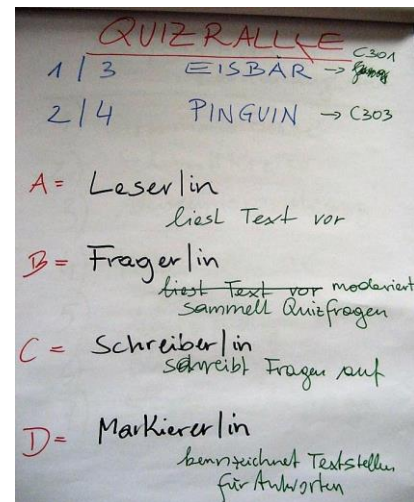 QUIZRALLYE
1/3 EISBÄR → C301
2/4 PINGUIN → C303
A = Leser/in
liest Text vor
B = Frager/in
liest Text vor moderiert
sammelt Quizfragen
C = Schreiber/in
schreibt Fragen auf
D = Markierer/in
kennzeichnet Textstellen
für Antworten